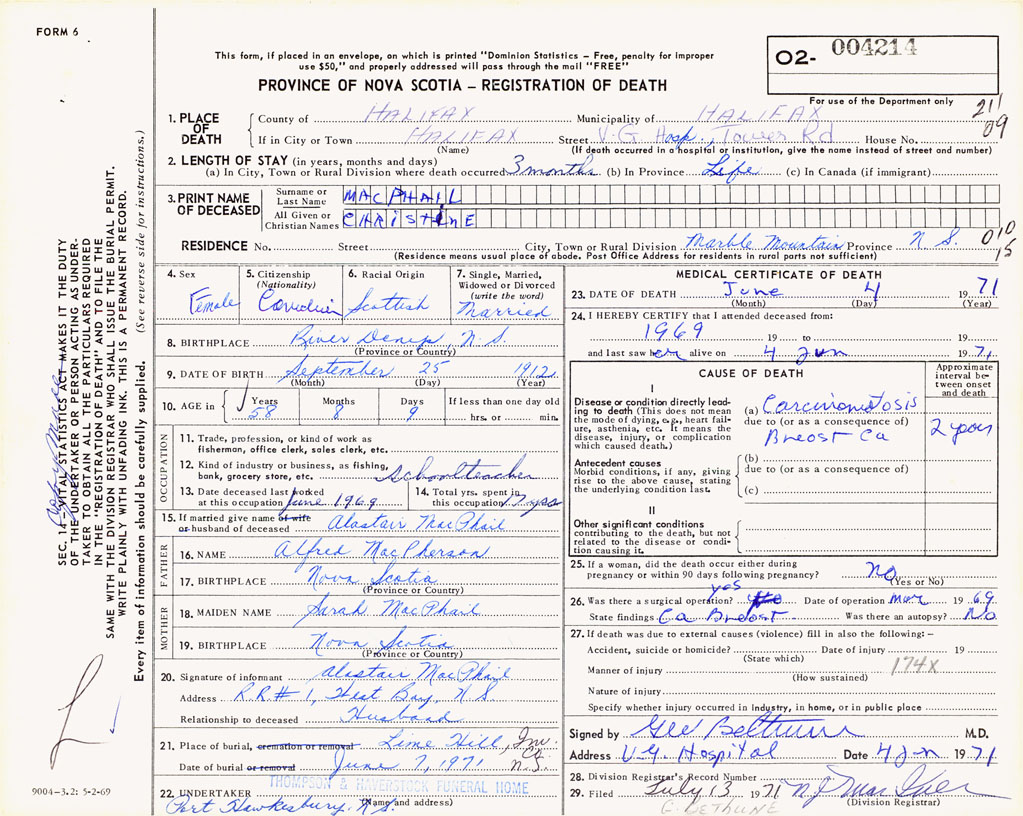 FORM 6
This form, if placed in an envelope, on which is printed "Dominion Statistics – Free, penalty for improper
use $50," and properly addressed will pass through the mail "FREE"
PROVINCE OF NOVA SCOTIA – REGISTRATION OF DEATH
O2- 004214
For use of the Department only
211
09
1. PLACE OF DEATH
County of HALIFAX Municipality of HALIFAX
If in City or Town HALIFAX Street V.G. Hosp., Tower Rd House No.
(Name) (If death occurred in a hospital or institution, give the name instead of street and number)
2. LENGTH OF STAY (in years, months and days)
(a) In City, Town or Rural Division where death occurred 3 months (b) In Province Life (c) In Canada (if immigrant)
3. PRINT NAME OF DECEASED
Surname or Last Name MACPHAIL
All Given or Christian Names CHRISTINE
RESIDENCE No. Street City, Town or Rural Division Marble Mountain Province N.S.
010
15
(Residence means usual place of abode. Post Office Address for residents in rural parts not sufficient)
4. Sex
Female
5. Citizenship
(Nationality)
Canadian
6. Racial Origin
Scottish
7. Single, Married,
Widowed or Divorced
(write the word)
Married
8. BIRTHPLACE River Denys, N.S.
(Province or Country)
9. DATE OF BIRTH September 25 1912
(Month) (Day) (Year)
10. AGE in
Years Months Days If less than one day old
58 8 9 hrs. or min.
OCCUPATION
11. Trade, profession, or kind of work as
fisherman, office clerk, sales clerk, etc.
12. Kind of industry or business, as fishing,
bank, grocery store, etc. schoolteacher
13. Date deceased last worked
at this occupation June 1969
14. Total yrs. spent in
this occupation 17 yrs
15. If married give name of wife
or husband of deceased Alastair MacPhail
FATHER
16. NAME Alfred MacPherson
17. BIRTHPLACE Nova Scotia
(Province or Country)
MOTHER
18. MAIDEN NAME Sarah MacPhail
19. BIRTHPLACE Nova Scotia
(Province or Country)
20. Signature of informant Alastair MacPhail
Address R.R# 1, West Bay, N S
Relationship to deceased Husband
21. Place of burial, cremation or removal Lime Hill, Inv. Co. N.S.
Date of burial or removal June 7, 1971
THOMPSON & HAVERSTOCK FUNERAL HOME
22. UNDERTAKER
(Name and address)
Port Hawkesbury, N.S.
MEDICAL CERTIFICATE OF DEATH
23. DATE OF DEATH June 4 1971
(Month) (Day) (Year)
24. I HEREBY CERTIFY that I attended deceased from:
1969 19 to 19
and last saw her alive on 4 Jun 1971
CAUSE OF DEATH
Approximate interval between onset and death
I
Disease or condition directly leading to death (This does not mean the mode of dying, e.g., heart failure, asthenia, etc. It means the disease, injury, or complication which caused death.)
(a) Carcinomatosis
due to (or as a consequence of)
Breast Ca
2 years
Antecedent causes
Morbid conditions, if any, giving rise to the above cause, stating the underlying condition last.
(b)
due to (or as a consequence of)
(c)
II
Other significant conditions
contributing to the death, but not related to the disease or condition causing it.
25. If a woman, did the death occur either during
pregnancy or within 90 days following pregnancy? no
(Yes or No)
26. Was there a surgical operation? yes Date of operation Mar 1969
State findings Ca Breast Was there an autopsy? No
27. If death was due to external causes (violence) fill in also the following: –
Accident, suicide or homicide? Date of injury 19
(State which)
174X
Manner of injury
(How sustained)
Nature of injury
Specify whether injury occurred in industry, in home, or in public place
Signed by M.D.
Address V.G. Hospital Date 4 Jun 1971
28. Division Registrar's Record Number
29. Filed July 13 1971
(Division Registrar)
G. BETHUNE
SEC. 14 – VITAL STATISTICS ACT MAKES IT THE DUTY
OF THE UNDERTAKER OR PERSON ACTING AS UNDER-
TAKER TO OBTAIN ALL THE PARTICULARS REQUIRED
IN THE "REGISTRATION OF DEATH" AND TO FILE THE
SAME WITH THE DIVISION REGISTRAR WHO SHALL ISSUE THE BURIAL PERMIT.
WRITE PLAINLY WITH UNFADING INK. THIS IS A PERMANENT RECORD.
Every item of information should be carefully supplied. (See reverse side for instructions.)
9004-3.2: 5-2-69